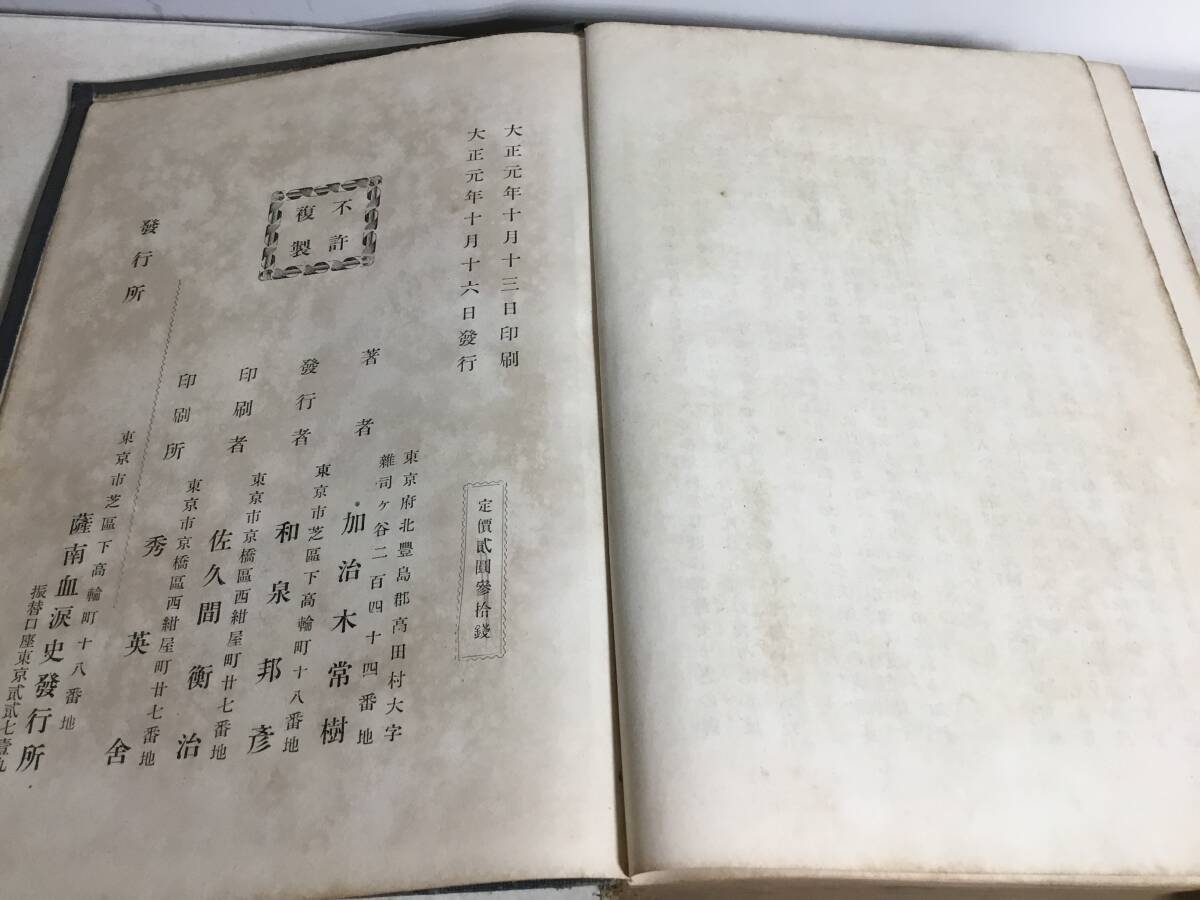 大正元年十月十三日印刷
大正元年十月十六日發行
定價貳圓參拾錢
不許
複製
東京府北豐島郡高田村大字
雜司ヶ谷二百四十四番地
著者 加治木常樹
東京市芝區下高輪町十八番地
發行者 和泉邦彥
東京市京橋區西紺屋町廿七番地
印刷者 佐久間衡治
東京市京橋區西紺屋町廿七番地
印刷所 秀英舍
東京市芝區下高輪町十八番地
發行所 薩南血淚史發行所
振替口座東京貳貳七壹九